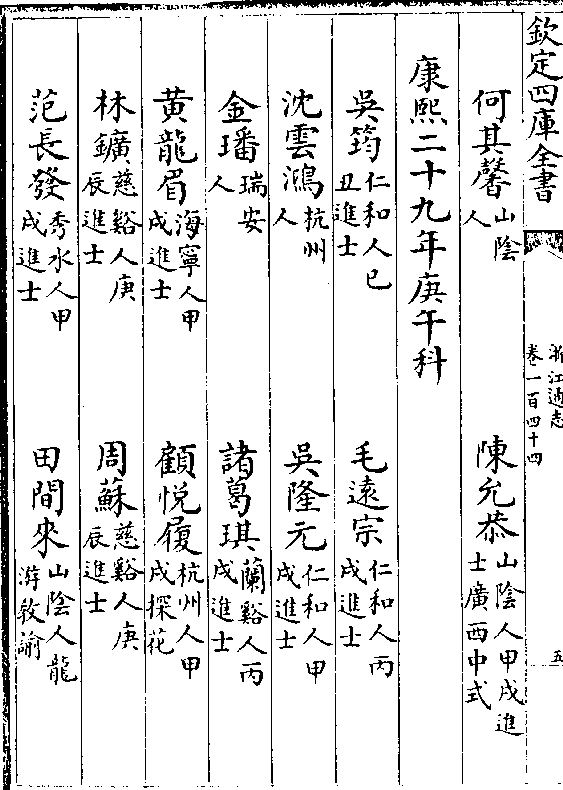 欽定四庫全書
浙江通志
卷一百四十四
五
何其馨山陰人
陳允恭山陰人甲戌進士廣西中式
康熙二十九年庚午科
吳筠仁和人己丑進士
毛遠宗仁和人丙戌進士
沈雲鴻杭州人
吳隆元仁和人甲戌進士
金璠瑞安人
諸葛琪蘭谿人丙戌進士
黃龍眉海寧人甲戌進士
顧悅履杭州人甲戌探花
林鑛慈谿人庚辰進士
周蘇慈谿人庚辰進士
范長發秀水人甲戌進士
田間來山陰人龍游教諭